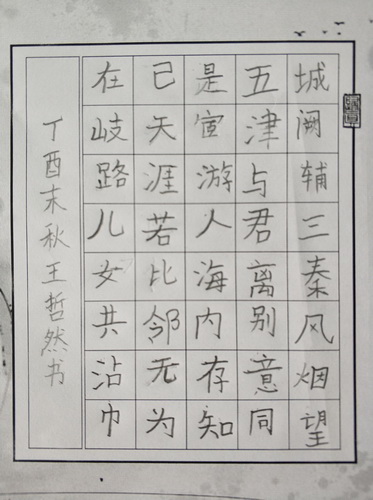 城阙辅三秦风烟望
五津与君离别意同
是宦游人海内存知
己天涯若比邻无为
在歧路儿女共沾巾
丁酉末秋王哲然书